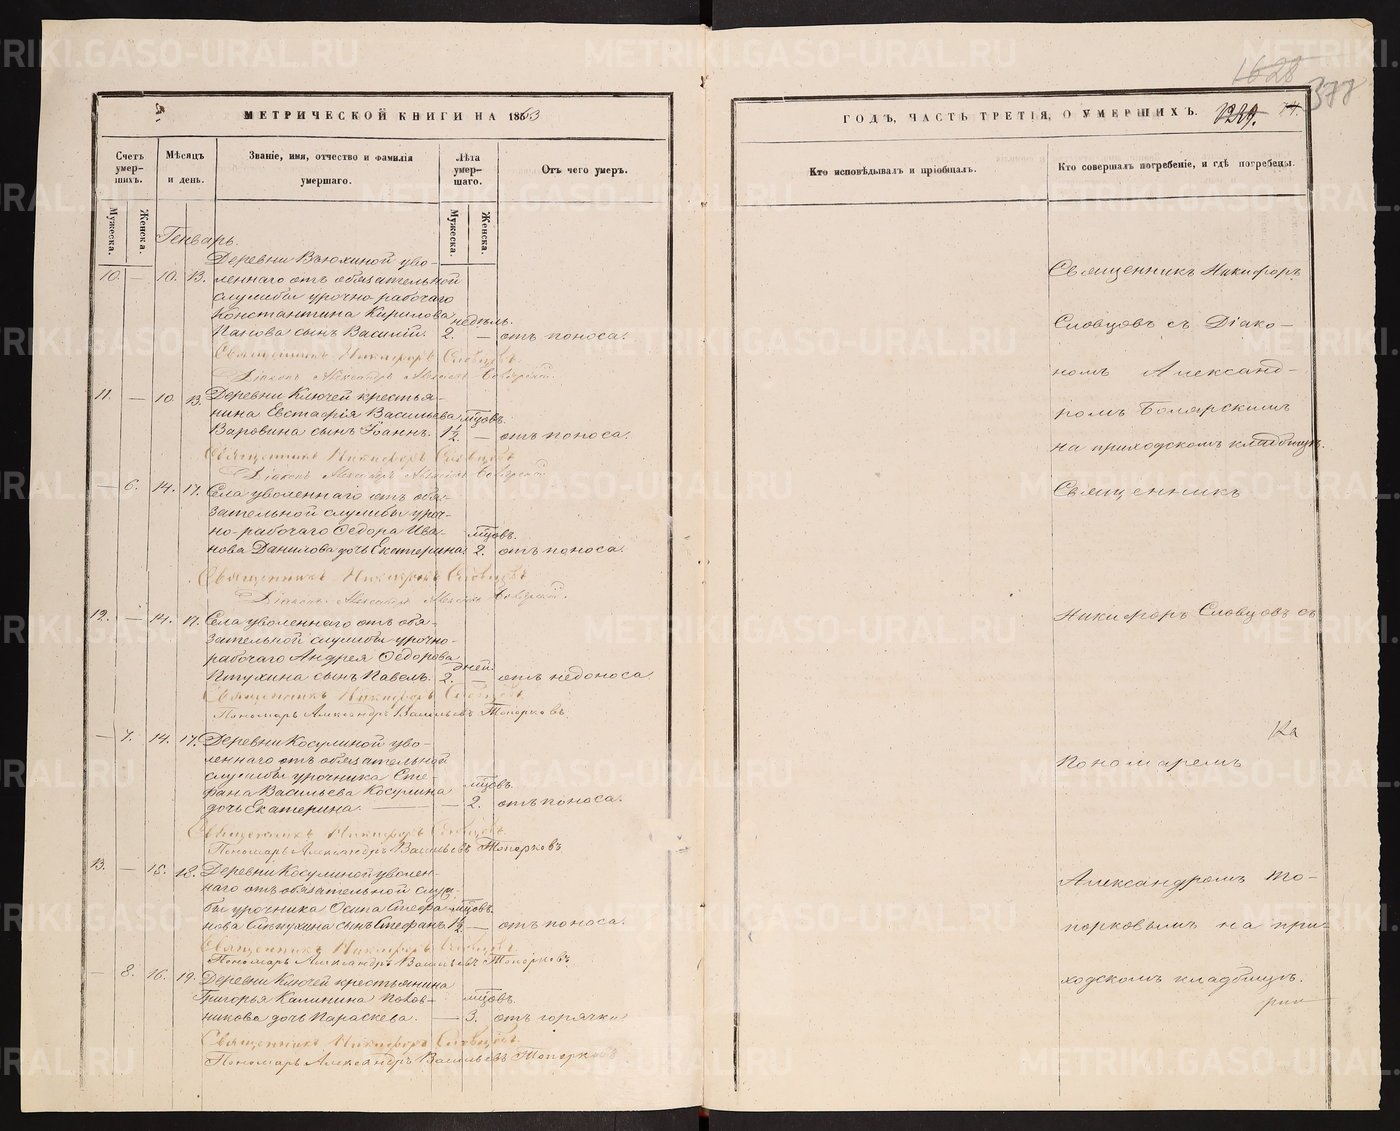 МЕТРИЧЕСКОЙ КНИГИ НА 1863
Счетъ умер-шихъ.
Мѣсяцъ и день.
Званіе, имя, отчество и фамилія умершаго.
Лѣта умер-шаго.
Отъ чего умеръ.
Мужеска.
Женска.
Мужеска.
Женска.
Генварь.
Деревни Вьюхиной уво-
10. — 10. 13. леннаго отъ обязательной
службы урочно рабочаго
Константина Кирилова недѣль.
Панова сынъ Василій. 2. — отъ поноса.
Священникъ Никифоръ Словцовъ.
Діаконъ Александръ
11. — 10. 13. Деревни Ключей крестья-
нина Евстафія Васильева мѣцовъ.
Варовина сынъ Іоаннъ. 1½ — отъ поноса.
Священникъ Никифоръ Словцовъ
Діаконъ Александръ
— 6. 14. 17. Села уволеннаго отъ обя-
зательной службы уроч-
но-рабочаго Ѳедора Ива- мѣцовъ.
нова Данилова дочь Екатерина. 2. отъ поноса.
Священникъ Никифоръ Словцовъ
Діаконъ Александръ
12. — 14. 17. Села уволеннаго отъ обя-
зательной службы урочно-
рабочаго Андрея Ѳедорова дней.
Птухина сынъ Павелъ. 2. — отъ недоноса
Священникъ Никифоръ Словцовъ
Пономарь Александръ Васильевъ Топорковъ.
— 7. 14. 17. Деревни Косулиной уво-
леннаго отъ обязательной
службы урочника Сте-
фана Васильева Косулина мѣцовъ.
дочь Екатерина. — 2. отъ поноса.
Священникъ Никифоръ Словцовъ.
Пономарь Александръ Васильевъ Топорковъ
13. — 15. 18. Деревни Косулиной уволен-
наго отъ обязательной служ-
бы урочника Осипа Стефа- мѣцовъ.
нова сынъ Стефанъ. 1½ — отъ поноса.
Священникъ Никифоръ Словцовъ
Пономарь Александръ Васильевъ Топорковъ.
— 8. 16. 19. Деревни Ключей крестьянина
Григорья Калинина Полов- мѣцовъ.
никова дочь Параскева. — 3. отъ горячки
Священникъ Никифоръ Словцовъ.
Пономарь Александръ Васильевъ Топорковъ
1628
377
ГОДЪ, ЧАСТЬ ТРЕТІЯ, О УМЕРШИХЪ. 1229.
Кто исповѣдывалъ и пріобщалъ.
Кто совершалъ погребеніе, и гдѣ погребены.
Священникъ Никифоръ
Словцовъ съ Діако-
номъ Александ-
ромъ Боярскимъ
на приходскомъ кладбищѣ.
Священникъ
Никифоръ Словцовъ съ
Пономаремъ
Александромъ То-
порковымъ на при-
ходскомъ кладбищѣ.
METRIKI.GASO-URAL.RU